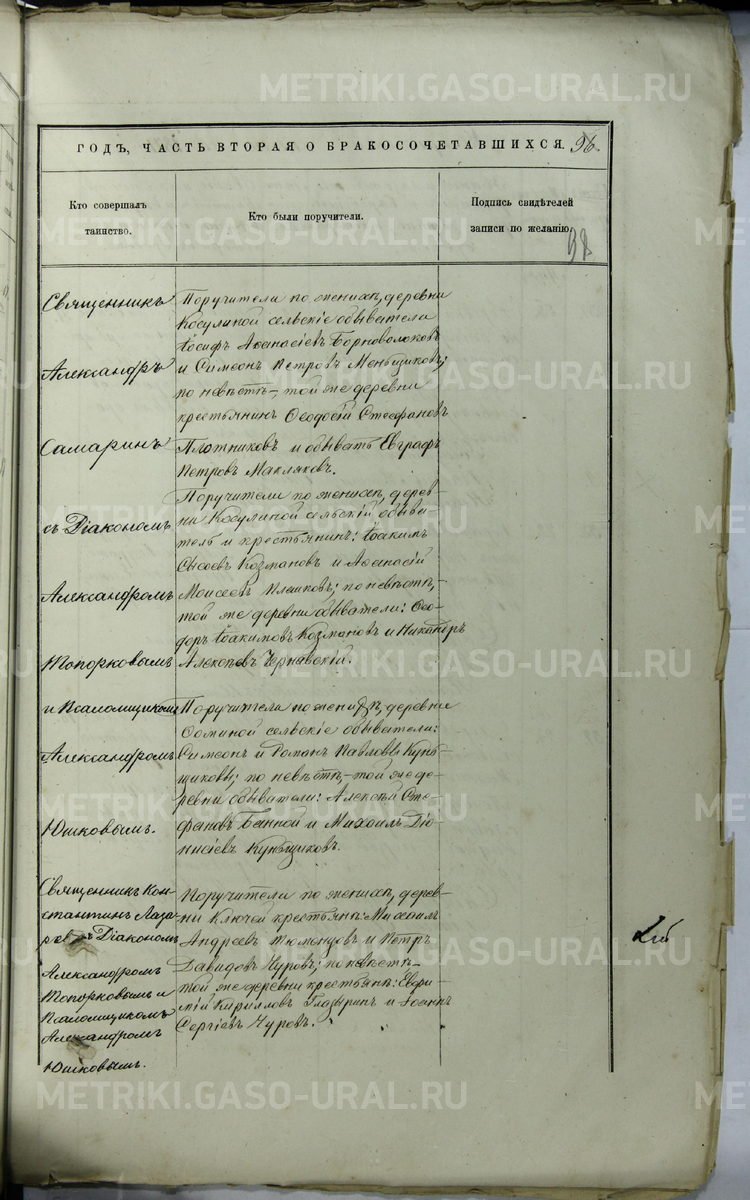 METRIKI.GASO-URAL.RU
ГОДЪ, ЧАСТЬ ВТОРАЯ О БРАКОСОЧЕТАВШИХСЯ. 96.
Кто совершалъ
таинство.
Кто были поручители.
Подпись свидѣтелей
записи по желанію.
98
Священникъ
Александръ
Самаринъ
съ Діакономъ
Александромъ
Топорковымъ
и Псаломщикомъ
Александромъ
Юшковымъ.
Поручители по женихѣ, деревни
Косулиной сельскіе обыватели
Іосифъ Аѳанасіевъ Борноволоковъ
и Симеонъ Петровъ Меньщиковъ;
по невѣстѣ, – той же деревни
крестьянинъ Ѳеодосій Стефановъ
Плотниковъ и обыватъ Евграфъ
Петровъ Макляковъ.
Поручители по женихѣ, дерев-
ни Косулиной сельскій обыва-
тель и крестьянинъ: Іоакимъ
Сысоевъ Козмановъ и Аѳанасій
Моисеевъ Плешковъ; по невѣстѣ, –
той же деревни обыватели: Ѳео-
доръ Іоакимовъ Козмановъ и Никаноръ
Алексѣевъ Чернавскій.
Поручители по женихѣ, деревни
Ѳоминой сельскіе обыватели:
Симеонъ и Романъ Павловы Кунь-
щиковы; по невѣстѣ, – той же де-
ревни обыватели: Алексѣй Сте-
фановъ Банной и Михаилъ Діо-
нисіевъ Куньщиковъ.
Священникъ Кон-
стантинъ Лаза-
ревъ съ Діакономъ
Александромъ
Топорковымъ и
Псаломщикомъ
Александромъ
Юшковымъ.
Поручители по женихѣ, дерев-
ни Ключей крестьяне: Михаилъ
Андреевъ Тюменцовъ и Петръ
Давидовъ Чуровъ; по невѣстѣ –
той же деревни крестьяне: Евфи-
мій Кирилловъ Глазыринъ и Іоаннъ
Сергіевъ Чуровъ.
METRIKI.GASO-URAL.RU